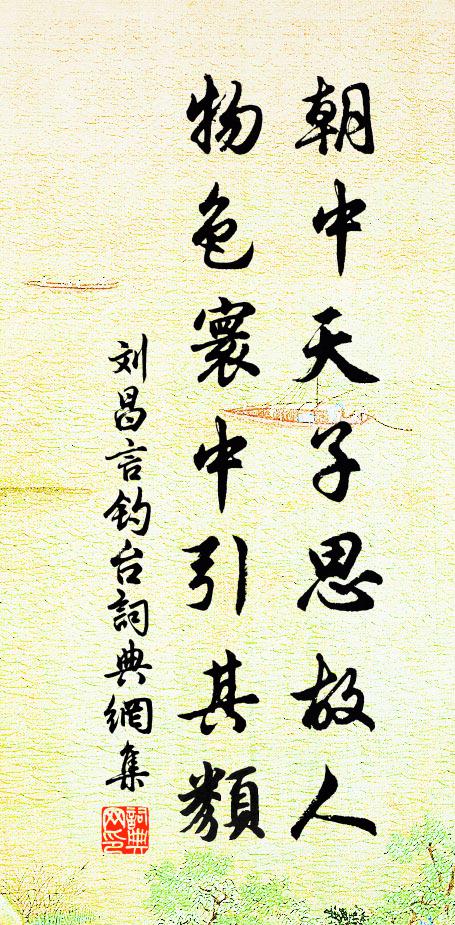 朝中天子思故人
物色寰中引其類
刘昌言钓台詞典網集
詞典網印